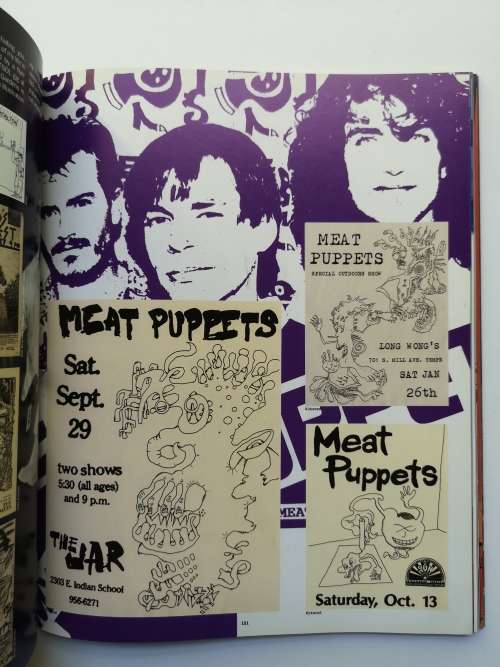 MEAT PUPPETS
SPECIAL OUTDOORS SHOW
LONG WONG'S
701 S. MILL AVE. TEMPE
SAT JAN
26th
MEAT PUPPETS
Sat.
Sept.
29
two shows
5:30 (all ages)
and 9 p.m.
THE JAR
2303 E. Indian School
956-6271
MEAT
Meat
Puppets
Saturday, Oct. 13
181